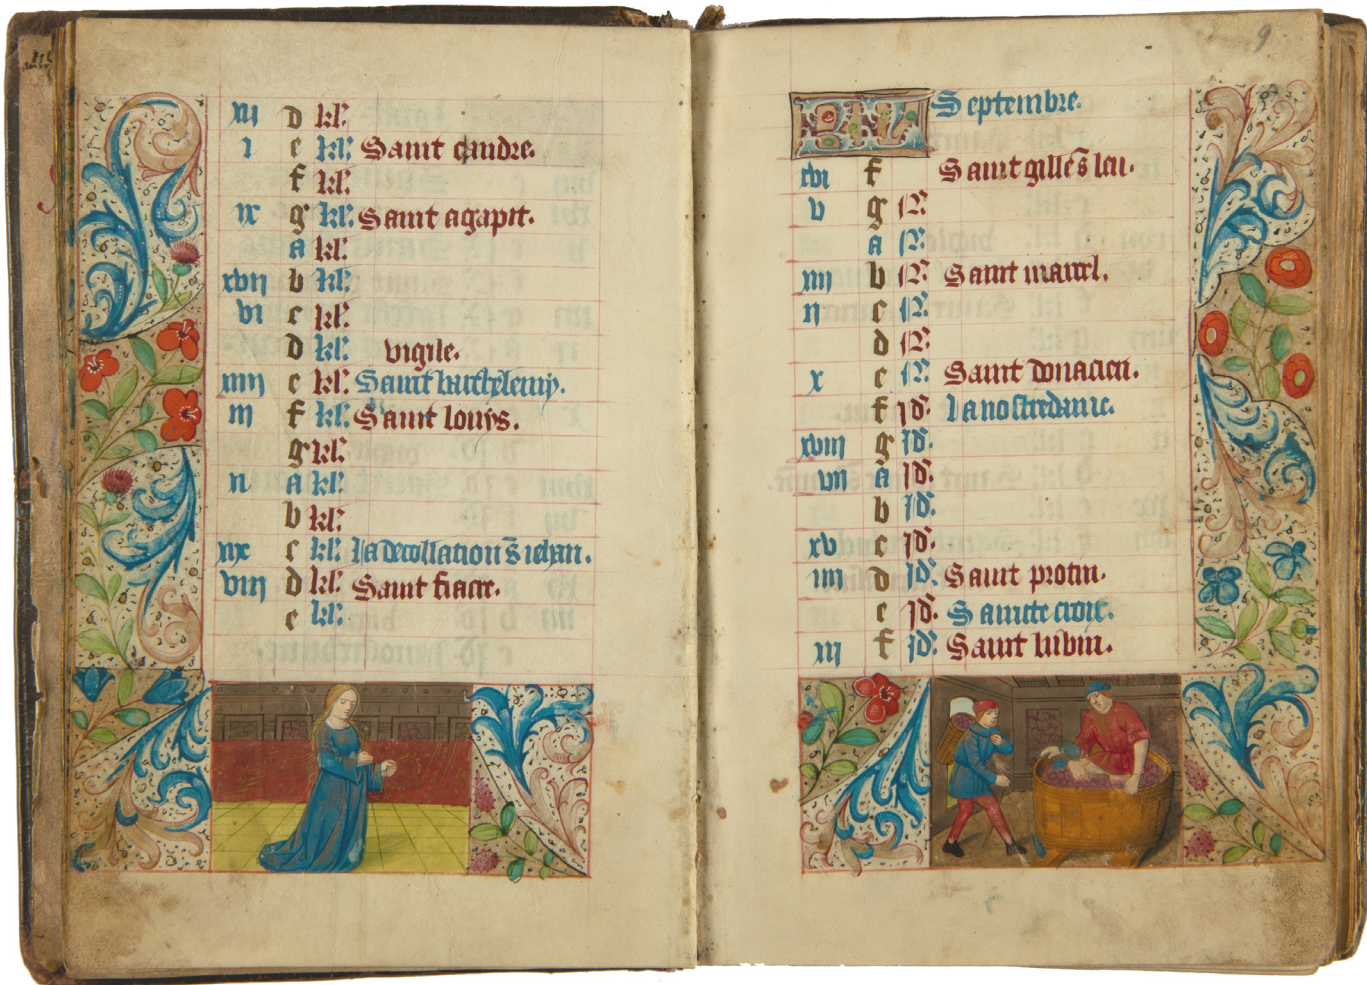 xii d kl'.
i e kl'. Saint candre.
f kl'.
ix g kl'. Saint agapit.
a kl'.
xvii b kl'.
vi c kl'.
d kl'. vigile.
xiiii e kl'. Saint barthelemy.
iii f kl'. Saint louys.
g kl'.
xi a kl'.
b kl'.
xix c kl'. la decollation s̄ iehan.
viii d kl'. Saint fiacre.
e kl'.
9
KL Septembre.
xvi f Saint gille s̄ leu.
v g N.
a N.
xiii b N. Saint marcel.
ii c N.
d N.
x e N. Saint donacien.
f Id'. la nostredame.
xviii g Id'.
vii a Id'.
b Id'.
xv c Id'.
iiii d Id'. Saint protin.
e Id'. Saincte croix.
xii f Id'. Saint lubin.